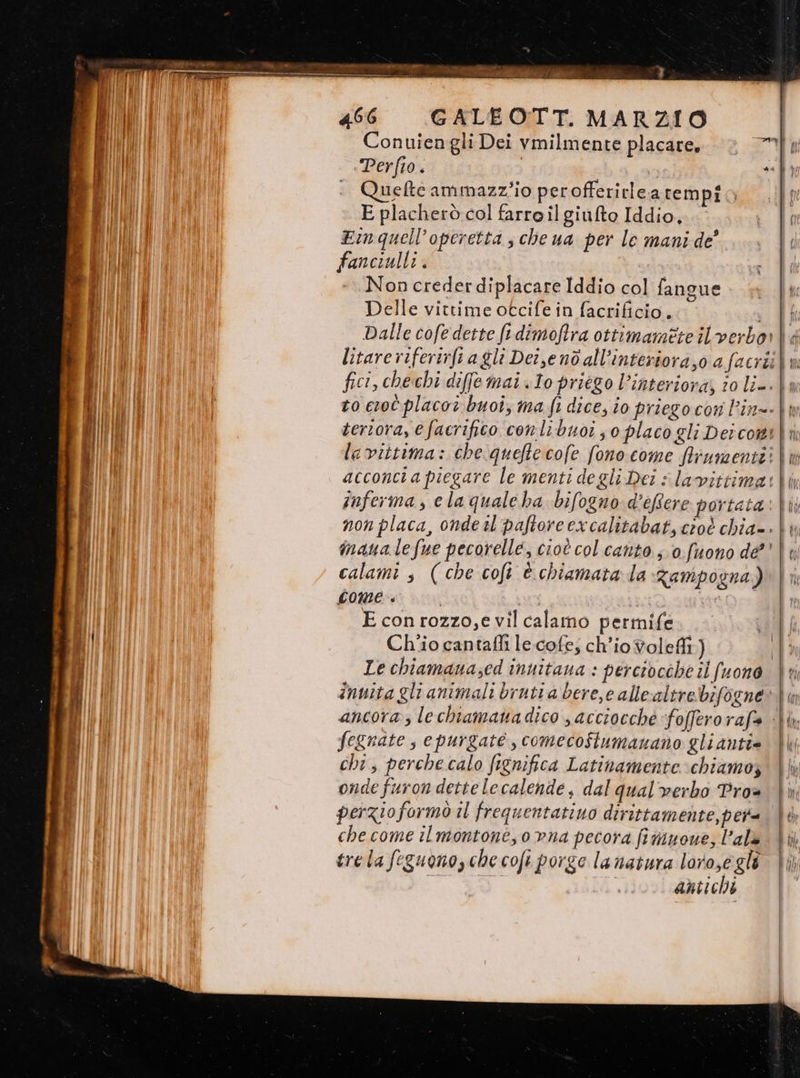 466 GALEOTT. MARZIO
Conuien gli Dei vmilmente placare.
Perſio.
Queſte ammazz'io per offerirle a tempi
E placherò col farro il giuſto Iddio.
E in quell'operetta, che ua per le mani de'
fanciulli.
Non creder di placare Iddio col ſangue
Delle vittime occiſe in ſacrificio.
Dalle coſe dette ſi dimoſtra ottimamēte il verbo
litare riferirſi a gli Dei, e nō all'interiora, o a ſacri
fici, che chi diſſe mai. Io priego l'interiora, io li-
to cioè placo i buoi, ma ſi dice, io priego con l'in-
teriora, e ſacrifico con li buoi, o placo gli Dei con
la vittima: che queſte coſe ſono come ſtrumenti
acconci a piegare le menti de gli Dei: la vittima
inferma, e la quale ha biſogno d'eſſere portata
non placa, onde il paſtore excalitabat, cioè chia-
maua le ſue pecorelle, cioè col canto, o ſuono de'
calami, (che coſi è chiamata la zampogna)
come.
E con rozzo, e vil calamo permiſe
Ch'io cantaſſi le coſe, ch'io voleſſi)
Le chiamaua, ed inuitaua: perciocche il ſuono
inuita gli animali bruti a bere, e alle altre biſogne
ancora, le chiamaua dico, acciocchè foſſero raſs
ſegnate, e purgate, come coſtumauano gli anti-
chi, perche calo ſignifica Latinamente chiamo,
onde furon dette le calende, dal qual verbo Pro-
perzio formò il frequentatiuo dirittamente, per-
che come il montone, o vna pecora ſi muoue, l'al-
tre la ſeguono, che coſi porge la natura loro, e gli
antichi